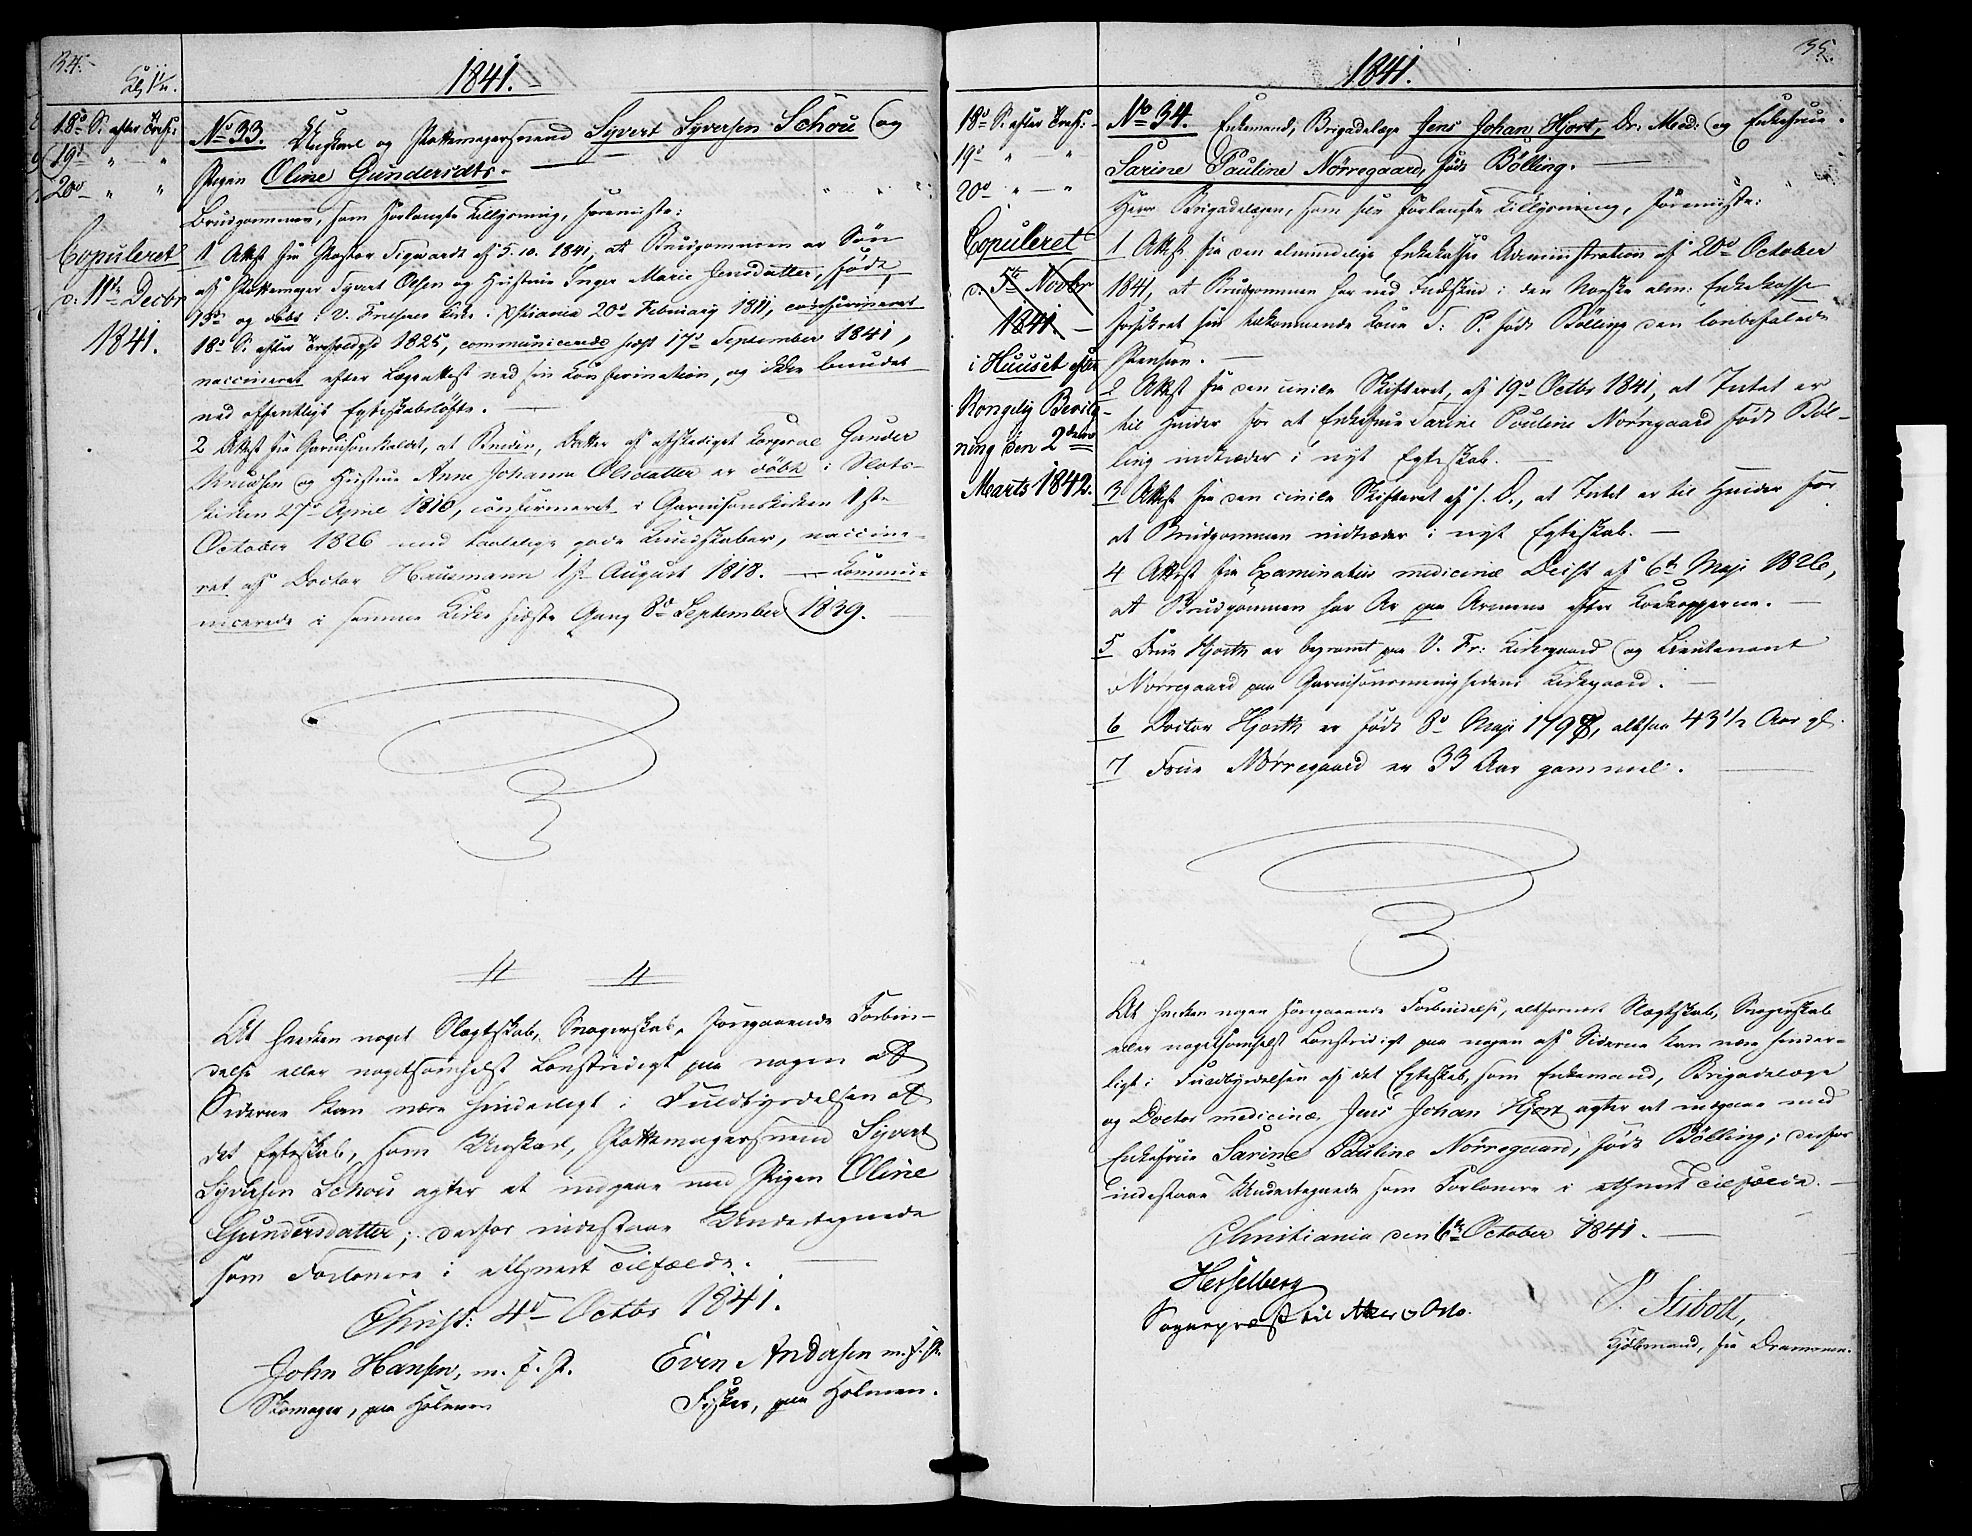 34.
Kl. 1½.
1841.
18d S. efter Tref:
19d " — "
20d " "
Copuleret
d. 11te Decbr
1841.
No 33. Ungkarl og Pottemagersvend Syvert Syversen Schou og
Pigen Oline Gundersdtr.
Brudgommen, som forlangte Tillysning, foreviste:
1 Attest fra Pastor Sigwardt af 5. 10. 1841, at Brudgommen er Søn
af Pottemager Syvert Olsen og Hustrue Inger Marie Jensdatter, født
og døbt i V. Frelsers Kirke i Xstiania 20d Februarii 1811, confirmeret
18d S. efter Trefoldgh 1825, communicerede sidst 17d September 1841,
vaccineret efter Lægeattest ved sin Konfirmation, og ikke bundet
ved offentligt Egteskabsløfte.
2 Attest fra Garnisonskaldet, at Bruden, Datter af afskediget Korporal Gunder
Knudsen og Hustrue Anne Johanne Olsdatter er døbt i Slots-
kirken 27d April 1810, confirmeret i Garnisonskirken 1ste
October 1826 med gode Kundskaber, vaccine-
ret af Doctor Hausmann 1ste August 1818. — Kommu-
nicerede i samme Kirke sidste Gang 8d September 1839.
At hverken noget Slægtskab, Svogerskab, foregaaende Forbin-
delse eller nogetsomhelst Lovstridigt paa nogen af
Siderne kan være hinderligt i Fuldbyrdelsen af
det Egteskab, som Ungkarl, Pottemagersvend Syvert
Syversen Schou agter at indgaae med Pigen Oline
Gundersdatter; derfor indestaae Undertegnede
som Forlovere i ethvert Tilfælde.
Christ: 4d Octbr 1841.
John Hansen, m. f. P.
Skomager, paa Holmen
Even Andersen m. f. P.
Fisker, paa Holmen.
35.
1841.
18d S. efter Tref:
19d " — "
20d " — "
Copuleret
d. 5te Novbr
1841.
i Huuset efter
Kongelig Bevilg-
ning den 2den
Marts 1842.
No 34. Enkemand, Brigadelæge Jens Johan Hjort, Dr. Med. og Enkefrue
Sarine Pauline Nørregaard, født Bölling.
Herr Brigadelægen, som selv forlangte Tillysning, foreviste:
1 Attest fra den almindelige Enkekasses Administration af 20d October
1841, at Brudgommen har ved Indskud i den Norske alm: Enkekasse
forsikret sin tilkommende Kone S. P. født Bölling den lovbefalede
Pension.
2 Attest fra den civile Skifteret, af 19d Octbr 1841, at Intet er
til Hinder for at Enkefrue Sarine Pauline Nørregaard født Böl-
ling indtræder i nyt Egteskab.
3 Attest fra den civile Skifteret af s. D., at Intet er til Hinder for
at Brudgommen indtræder i nyt Egteskab.
4 Attest fra Examinatus medicinæ Deist af 6te Maji 1826,
at Brudgommen har Ar paa Armene efter Kokopperne.
5 Frue Hjorth er begravet paa V. Fr: Kirkegaard og Lieutenant
Nørregaard paa Garnisonsmenighedens Kirkegaard.
6 Doctor Hjorth er født 8d Maji 1798, altsaa 43½ Aar gl.
7 Frue Nørregaard er 33 Aar gammel.
At hverken nogen foregaaende Forbindelse, altfornært Slægtskab, Svogerskab
eller nogetsomhelst Lovstridigt paa nogen af Siderne kan være hinder-
ligt i Fuldbyrdelsen af det Egteskab, som Enkemand, Brigadelæge
og Doctor medicinæ, Jens Johan Hjort agter at indgaae med
Enkefrue Sarine Pauline Nørregaard, født Bölling; derfor
indestaae Undertegnede som Forlovere i ethvert Tilfælde.
Christiania den 6te October 1841.
Hesselberg
Sognepræst til Aker & Oslo.
P. Stibolt,
Kjøbmand, fra Drammen.